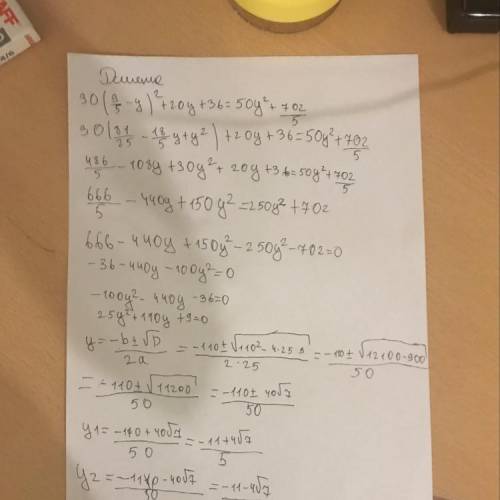 30(9/5 - y)² + 20y + 36 = 50y² + 702/5
30(81/25 - 18/5 y + y²) + 20y + 36 = 50y² + 702/5
486/5 - 108y + 30y² + 20y + 36 = 50y² + 702/5
666/5 - 440y + 150y² = 250y² + 702
666 - 440y + 150y² - 250y² - 702 = 0
-36 - 440y - 100y² = 0
-100y² - 440y - 36 = 0
25y² + 110y + 9 = 0
y = (-b ± √D)/2a = (-110 ± √(110² - 4·25·9))/(2·25) = (-110 ± √(12100 - 900))/50
= (-110 ± √11200)/50 = (-110 ± 40√7)/50
y1 = (-110 + 40√7)/50 = (-11 + 4√7)/5
y2 = (-110 - 40√7)/50 = -11 - 4√7